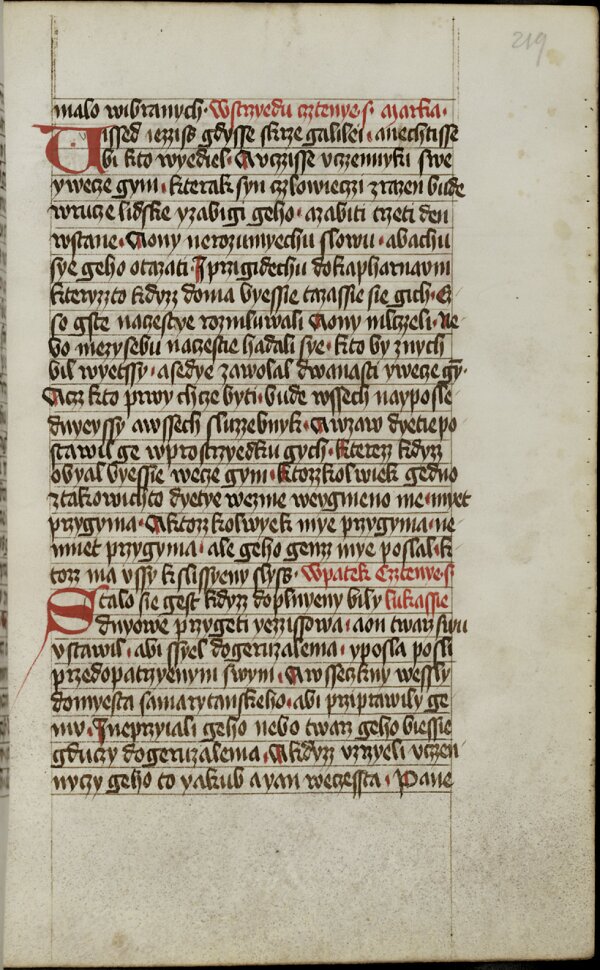 219
malo wibranych· Wstrzyedu cztenye s· Marka·
Uissed iezziss gdysse skrze galilei· anechtisse
bi kto wyediel· A vczisse vczenniky swe
ywecze gym· kterak syn czlowieczi zrazen bude
wrucze lidske yzabigi geho· azabiti trzeti den
wstane· A ony nerozumyechu slowu· abachu
sye geho otazati· I przigidechu dokapharnaum
kteryzzto kdyzz doma byessie tazassie sie gich· C
so gste naczestye rozmluwali A ony mlczeli· Ne
bo mezysebu naczestie hadali sye· kto by znych
bil wyetssy· asedye zawolal dwanasti ywecze gy·
Acz kto prwy chcze byti· bude wssech nayposle
dnyeyssy awssech sluzzebnyk· A wzaw dyetie po
stawil ge wprostrzyedku gych· kterez kdyzz
obyal byessie wecze gym· ktozzkolwiek gedno
ztakowichto dyetye wezme weygmeno me· myet
przygyma· A ktozzkolwyek mye przygyma· ne
miet przygyma· ale geho genz mye poslal· k
tozz ma vssy k slissyeny slyss· Wpatek Cztenye s
Stalo sie gest kdyzz doplnyeny bily lukassie
dnyowe przygeti yezzissowa· aon twarz swu
vstawil· abi ssyel dogeruzalema· yposla posli
przedopatrzyenym swym· A wsseczkny wessly
domyesta samarytanskeho· abi prziprawily ge
mu· I neprzyiali geho nebo twarz geho biessie
gduczy dogeruzalema· A kdyzz vzrzyeli vczen
nyczy geho to yakub ayan weczessta· Pane